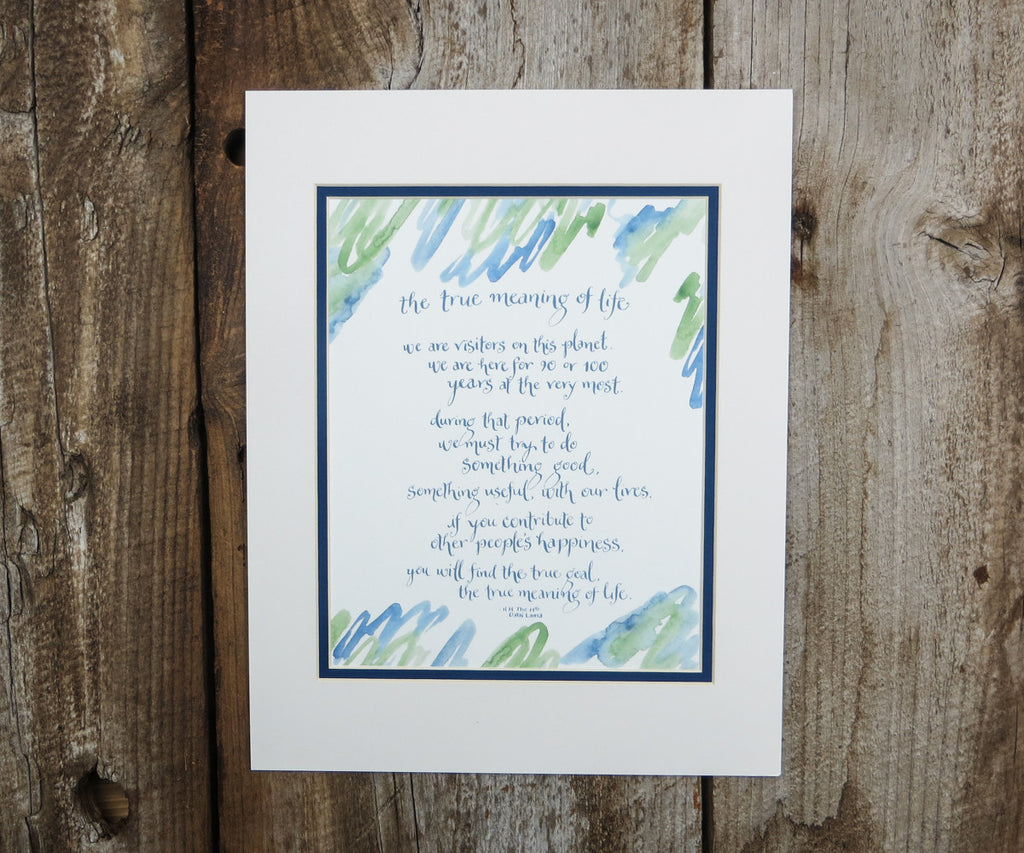 the true meaning of life
we are visitors on this planet.
we are here for 90 or 100
years at the very most.
during that period,
we must try to do
something good,
something useful, with our lives.
if you contribute to
other people's happiness,
you will find the true goal,
the true meaning of life.
- H.H. The 14th
Dalai Lama